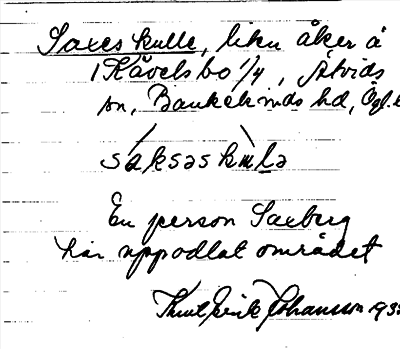 Saxes kulle, liten åker å
1 Kävelsbo 1/4, Åtvids
sn, Bankekinds hd, Ögl.
saksəskulə
En person Saxberg
har uppodlat området
Knut Erik Johansson